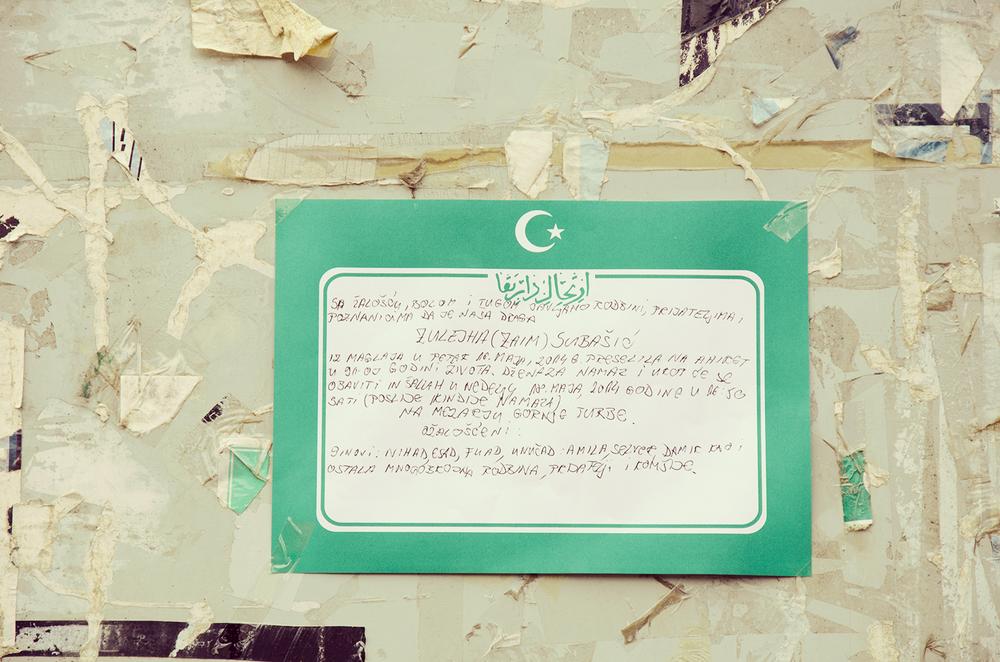 ارتحال دار بقا
SA ŽALOŠĆU, BOLOM I TUGOM JAVLJAMO RODBINI, PRIJATELJIMA I
POZNANICIMA DA JE NAŠA DRAGA
ZULEJHA (ZAIM) SUBAŠIĆ
IZ MAGLAJA U PETAK MAJA, PRESELILA NA AHIRET
U GODINI ŽIVOTA. DŽENAZA NAMAZ I UKOP ĆE SE
OBAVITI INŠALLAH U NEDELJU, MAJA, GODINE U
SATI (POSLIJE IKINDIJE NAMAZA)
NA MEZARJU GORNJE TURBE.
OŽALOŠĆENI:
SINOVI: NIHAD, ESAD, FUAD, UNUČAD: AMILA, DAMIR KAO I
OSTALA MNOGOBROJNA RODBINA, PRIJATELJI I KOMŠIJE.